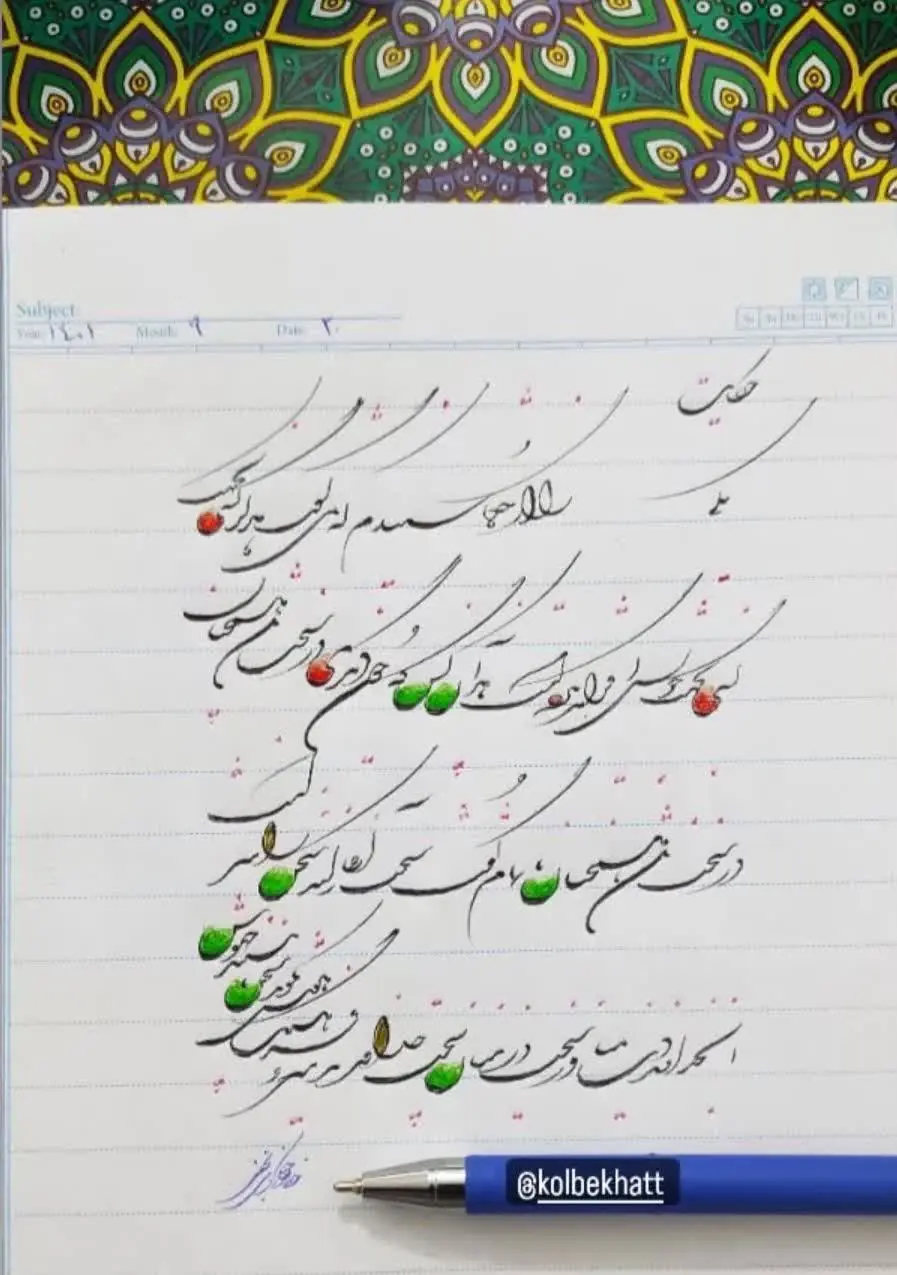 Subject:
Year: ۱۴۰۱ Month: ۹ Date: ۲۰
حکایت
یکی را از حکما شنیدم که می‌گفت هرگز کسی
بجهل خویش اقرار نکرده است مگر آن کس که چون دیگری در سخن باشد همچنان
ناتمام گفته سخن آغاز کند سخن را سر
است ای خردمند و بن میاور سخن در میان سخن خداوند تدبیر و فرهنگ و هوش نگوید سخن تا نبیند خموش
@kolbekhatt